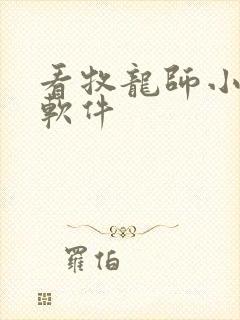 看牧龍師小
軟件
羅伯